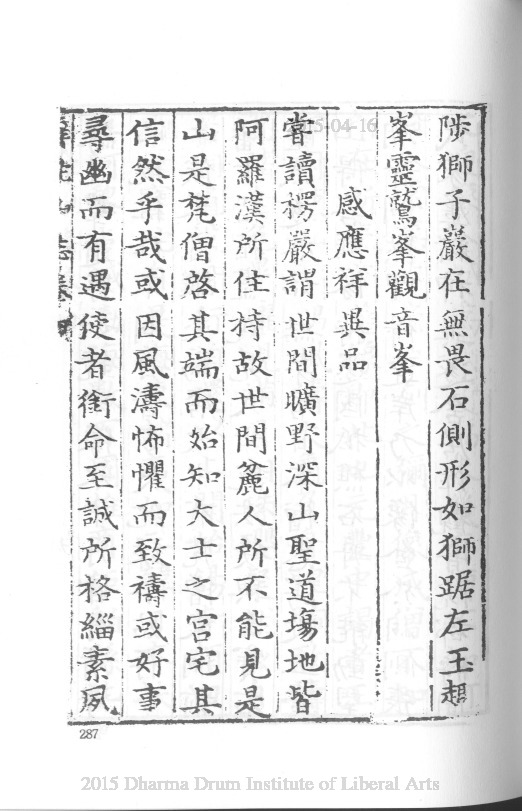 陟獅子巖在無畏石側形如獅踞左玉趨
峯靈鷲峯觀音峯
感應祥異品
嘗讀楞嚴謂世間曠野深山聖道場地皆
阿羅漢所住持故世間麄人所不能見是
山是梵僧啓其端而始知大士之宫宅其
信然乎哉或因風濤怖懼而致禱或好事
尋幽而有遇使者銜命至誠所格緇素夙
287
2015 Dharma Drum Institute of Liberal Arts